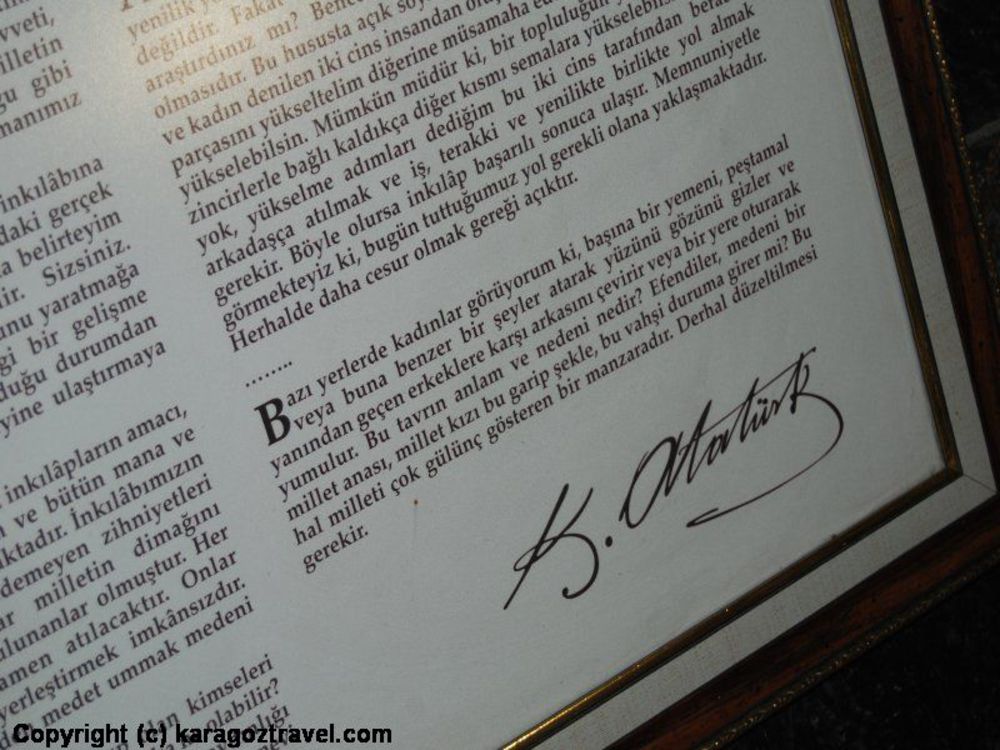 vveti,
illetin
gu gibi
manımız
inkılâbına
daki gerçek
a belirteyim
ir. Sizsiniz.
unu yaratmağa
gi bir gelişme
duğu durumdan
yine ulaştırmaya
inkılâpların amacı,
n ve bütün mana ve
ktadır. İnkılâbımızın
demeyen zihniyetleri
ar milletin dimağını
ulunanlar olmuştur. Her
amen atılacaktır. Onlar
yerleştirmek imkânsızdır.
medet ummak medeni
kimseleri
olabilir?
yenilik
değildir. Fakat
araştırdınız mı?
olmasıdır. Bu hususta açık
ve kadın denilen iki cins insandan
parçasını yükseltelim diğerine müsamaha
yükselebilsin. Mümkün müdür ki, bir topluluğun
zincirlerle bağlı kaldıkça diğer kısmı semalara
yok, yükselme adımları dediğim bu iki cins tarafından
arkadaşça atılmak ve iş, terakki ve yenilikte birlikte yol almak
gerekir. Böyle olursa inkılâp başarılı sonuca ulaşır. Memnuniyetle
görmekteyiz ki, bugün tuttuğumuz yol gerekli olana yaklaşmaktadır.
Herhalde daha cesur olmak gereği açıktır.
........
Bazı yerlerde kadınlar görüyorum ki, başına bir yemeni, peştamal
veya buna benzer bir şeyler atarak yüzünü gözünü gizler ve
yanından geçen erkeklere karşı arkasını çevirir veya bir yere oturarak
yumulur. Bu tavrın anlam ve nedeni nedir? Efendiler, medeni bir
millet anası, millet kızı bu garip şekle, bu vahşi duruma girer mi? Bu
hal milleti çok gülünç gösteren bir manzaradır. Derhal düzeltilmesi
gerekir.
K. Atatürk
Copyright (c) karagoztravel.com